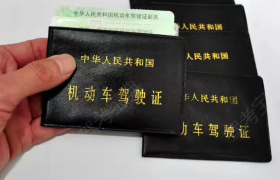 中华人民共和国机动车驾驶证副页
中华人民共和国
机动车驾驶证
人民共和国
驾驶证
人民共和国
驾驶证